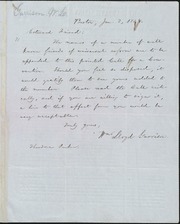 Garrison W. L.
Boston, Jan. 2, 18
Esteemed Friend:
The names of a number of well
known friends of universal reform are to be
appended to the printed Call for a Con-
vention. Should you feel disposed to it, it
would gratify them to see yours added to
the number. Please read the Call
and, if you are willing to
it, a line to that effect from you would be
very acceptable.
Truly yours,
Wm. Lloyd Garrison
Theodore Parker.